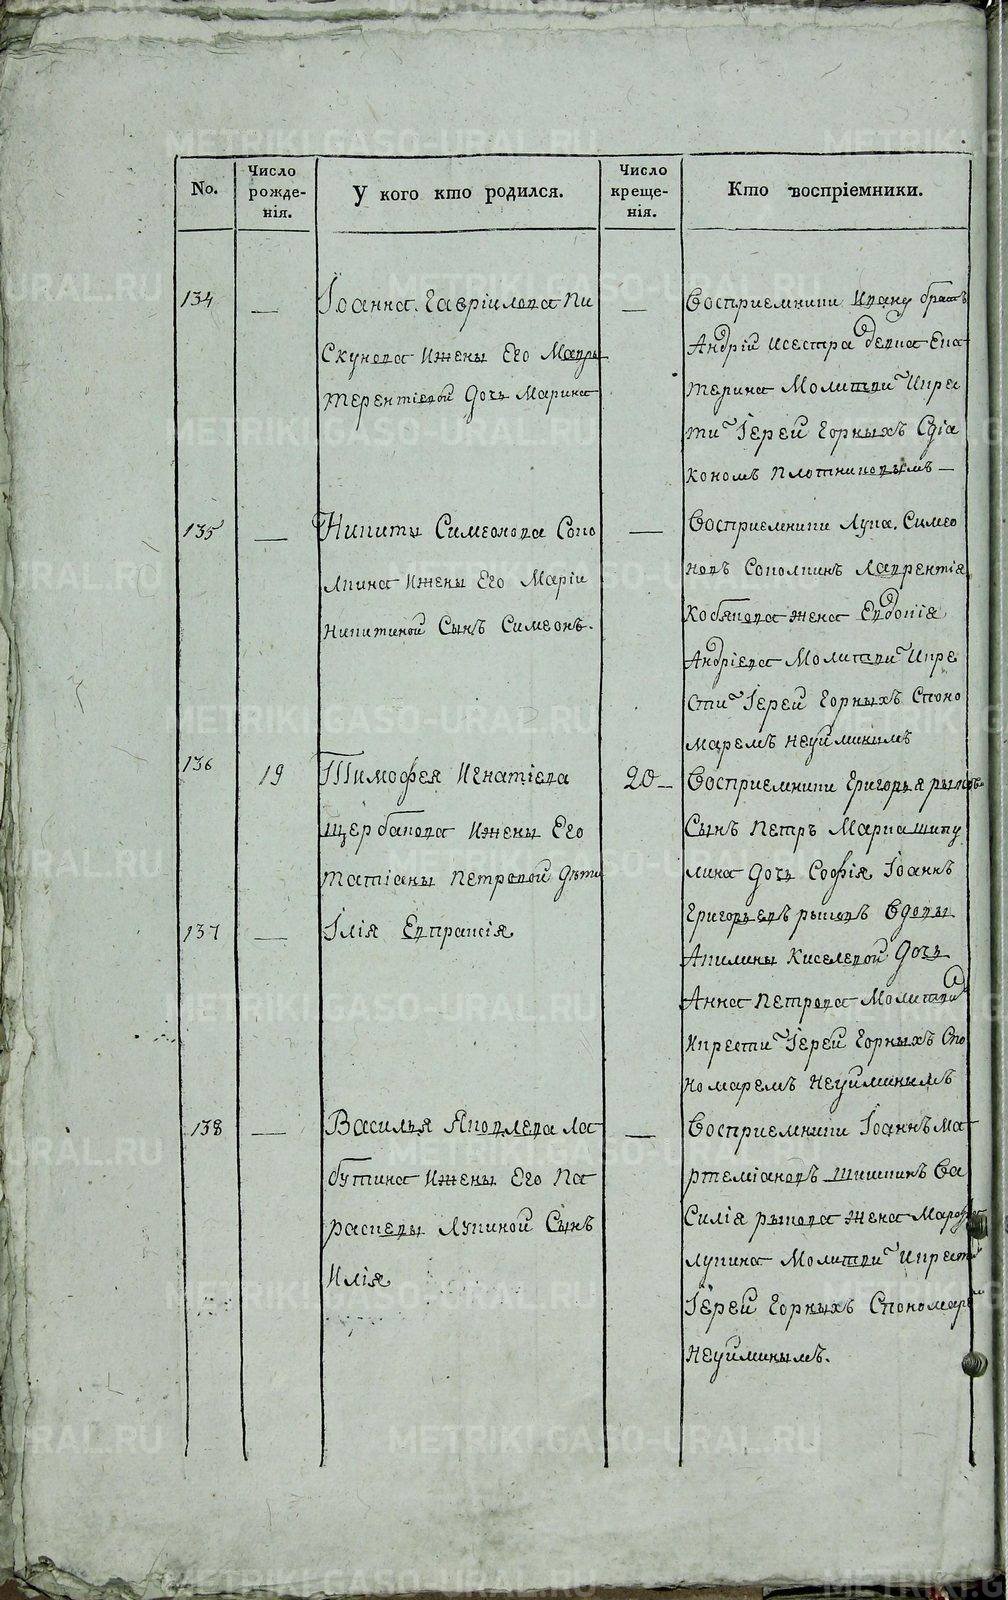 No.
Число рожде-нія.
У кого кто родился.
Число креще-нія.
Кто воспріемники.
134
—
Іоанна Гавріилова Пи
скунова Ижены Его Мавры
терентіевой Дочь Марина
—
Восприемники Ивану братъ
Андрій Исестра девка Ека
терина Молитви Икре
сти Іерей Горныхъ Сдіа
кономъ Плотниковымъ —
135
—
Никиты Симеонова Соко
лкина Ижены Его Маріи
Никитиной Сынъ Симеонъ.
—
Восприемники Лука Симео
новъ Соколкинъ Лаврентія
Кобякова жена Евдокія
Андріева Молитви Икре
сти Іерей Горныхъ Споно
маремъ Неуйминымъ
136
19
Тимофея Игнатіева
щербакова Ижены Его
татіаны Петровой Дѣти
20 —
Восприемники Григорья рыковъ
Сынъ Петръ Марка шипу
лина Дочь Софія Іоаннъ
Григорьевъ рыковъ Вдовы
Акилины Киселевой Дочь
Анна Петрова Молитви
Икрести Іерей Горныхъ Спо
номаремъ Неуйминымъ
137
—
Ілія Евпраксія
138
—
Василья Яковлева Ла
бутина Ижены Его Па
раскевы Лукиной Сынъ
Илія
—
Восприемники Іоаннъ Ма
ртеміановъ шишкинъ Ва
силія рыкова жена Марфа
лукина Молитви Икрести
Іерей Горныхъ Спономаре
Неуйминымъ.
METRIKI.GASO-URAL.RU